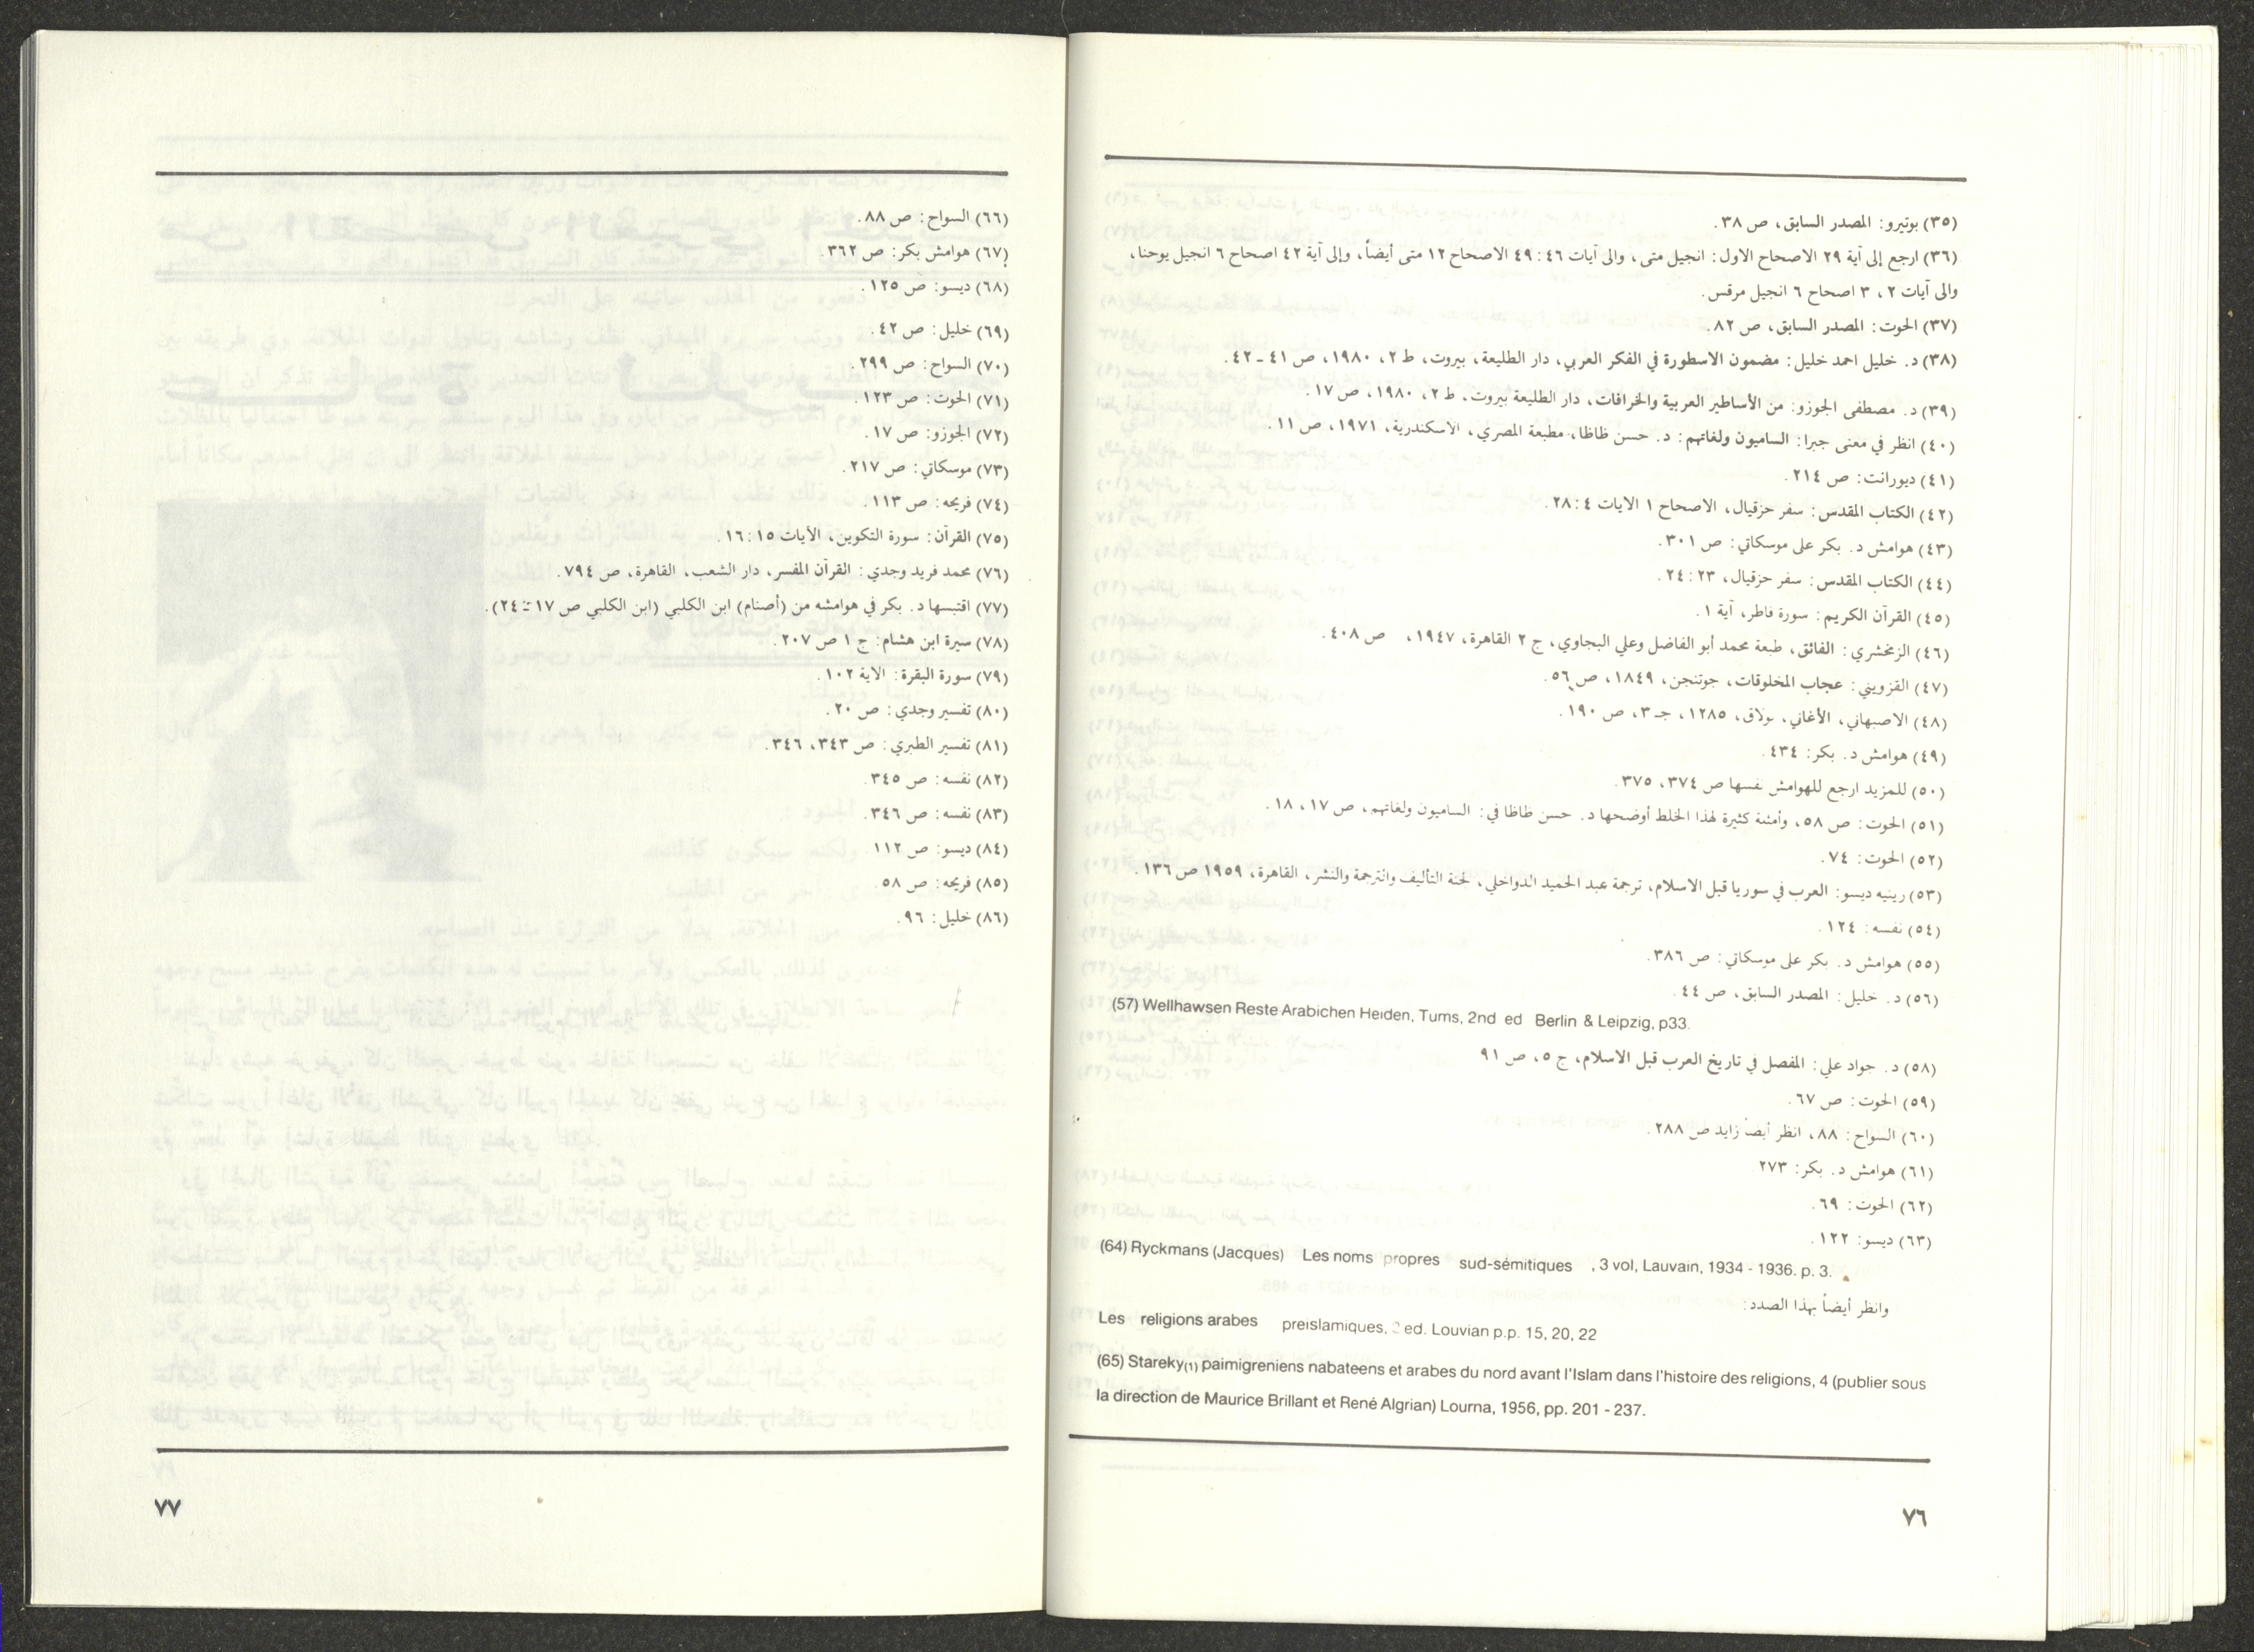 (٣٥) بوتيرو: المصدر السابق، ص ٣٨.
(٣٦) ارجع إلى آية ٢٩ الاصحاح الاول: انجيل متى، والى آيات ٤٦ : ٤٩ الاصحاح ١٢ متى أيضاً، وإلى آية ٤٢ اصحاح ٦ انجيل يوحنا،
والى آيات ٢، ٣ اصحاح ٦ انجيل مرقس.
(٣٧) الحوت: المصدر السابق، ص ٨٢.
(٣٨) د. خليل احمد خليل: مضمون الاسطورة في الفكر العربي، دار الطليعة، بيروت، ط ٢، ١٩٨٠، ص ٤١ - ٤٢.
(٣٩) د. مصطفى الجوزو: من الأساطير العربية والخرافات، دار الطليعة بيروت، ط ٢، ١٩٨٠، ص ١٧.
(٤٠) انظر في معنى جبرا: الساميون ولغاتهم: د. حسن ظاظا، مطبعة المصري، الاسكندرية، ١٩٧١، ص ١١.
(٤١) ديورانت: ص ٢١٤.
(٤٢) الكتاب المقدس: سفر حزقيال، الاصحاح ١ الايات ٤ : ٢٨.
(٤٣) هوامش د. بكر على موسكاتي: ص ٣٠١.
(٤٤) الكتاب المقدس: سفر حزقيال، ٢٣ : ٢٤.
(٤٥) القرآن الكريم: سورة فاطر، آية ١.
(٤٦) الزمخشري: الفائق، طبعة محمد أبو الفاضل وعلي البجاوي، ج ٢ القاهرة، ١٩٤٧، ص ٤٠٨.
(٤٧) القزويني: عجاب المخلوقات، جوتنجن، ١٨٤٩، ص ٥٦.
(٤٨) الاصبهاني، الأغاني، بولاق، ١٢٨٥، جـ ٣، ص ١٩٠.
(٤٩) هوامش د. بكر: ٤٣٤.
(٥٠) للمزيد ارجع للهوامش نفسها ص ٣٧٤، ٣٧٥.
(٥١) الحوت: ص ٥٨، وأمثلة كثيرة لهذا الخلط أوضحها د. حسن ظاظا في: الساميون ولغاتهم، ص ١٧، ١٨.
(٥٢) الحوت: ٧٤.
(٥٣) رينيه ديسو: العرب في سوريا قبل الاسلام، ترجمة عبد الحميد الدواخلي، لجنة التأليف والترجمة والنشر، القاهرة، ١٩٥٩ ص ١٣٦.
(٥٤) نفسه: ١٢٤.
(٥٥) هوامش د. بكر على موسكاتي: ص ٣٨٦.
(٥٦) د. خليل: المصدر السابق، ص ٤٤.
(57) Wellhawsen Reste Arabichen Heiden, Tums, 2nd ed Berlin & Leipzig, p33.
(٥٨) د. جواد علي: المفصل في تاريخ العرب قبل الاسلام، ج ٥، ص ٩١
(٥٩) الحوت: ص ٦٧.
(٦٠) السواح: ٨٨، انظر أيضاً زايد ص ٢٨٨.
(٦١) هوامش د. بكر: ٢٧٣
(٦٢) الحوت: ٦٩.
(٦٣) ديسو: ١٢٢.
(64) Ryckmans (Jacques) Les noms propres sud-sémitiques , 3 vol, Lauvain, 1934 - 1936. p. 3.
وانظر أيضاً بهذا الصدد:
Les religions arabes preislamiques, 2 ed. Louvian p.p. 15, 20, 22
(65) Stareky(1) paimigreniens nabateens et arabes du nord avant l'Islam dans l'histoire des religions, 4 (publier sous
la direction de Maurice Brillant et René Algrian) Lourna, 1956, pp. 201 - 237.
٧٦
(٦٦) السواح: ص ٨٨.
(٦٧) هوامش بكر: ص ٣٦٢.
(٦٨) ديسو: ص ١٢٥.
(٦٩) خليل: ص ٤٢.
(٧٠) السواح: ص ٢٩٩.
(٧١) الحوت: ص ١٢٣.
(٧٢) الجوزو: ص ١٧.
(٧٣) موسكاتي: ص ٢١٧.
(٧٤) فريحه: ص ١١٣.
(٧٥) القرآن: سورة التكوين، الآيات ١٥ : ١٦.
(٧٦) محمد فريد وجدي: القرآن المفسر، دار الشعب، القاهرة، ص ٧٩٤.
(٧٧) اقتبسها د. بكر في هوامشه من (أصنام) ابن الكلبي (ابن الكلبي ص ١٧ - ٢٤).
(٧٨) سيرة ابن هشام: ج ١ ص ٢٠٧.
(٧٩) سورة البقرة: الاية ١٠٢.
(٨٠) تفسير وجدي: ص ٢٠.
(٨١) تفسير الطبري: ص ٣٤٣، ٣٤٦.
(٨٢) نفسه: ص ٣٤٥.
(٨٣) نفسه: ص ٣٤٦.
(٨٤) ديسو: ص ١١٢.
(٨٥) فريحه: ص ٥٨.
(٨٦) خليل: ٩٦.
٧٧